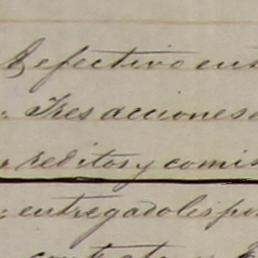 efectivo en
Tres acciones
reditos y comis
entregadoles por
contrato